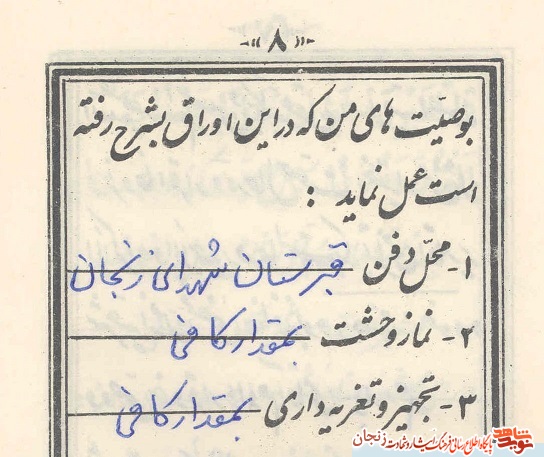 ۸
بوصیّت های من که در این اوراق بشرح رفته
است عمل نماید :
۱- محلّ دفن قبرستان شهدای زنجان
۲- نماز وحشت بمقدار کافی
۳- تجهیز و تعزیه داری بمقدار کافی
نوید شاهد پایگاه اطلاع رسانی فرهنگ ایثار و شهادت زنجان